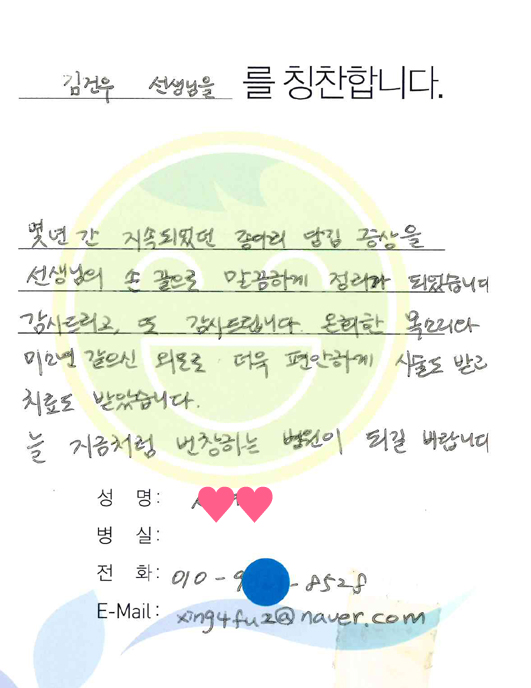 김건우 선생님을 를 칭찬합니다.
몇년간 지속되었던 종아리 당김 증상을
선생님의 손 끝으로 말끔하게 정리가 되었습니다
감사드리고, 또 감사드립니다. 온화한 목소리와
미소년 같으신 외모로 더욱 편안하게 시술도 받고
치료도 받았습니다.
늘 지금처럼 번창하는 병원이 되길 바랍니다
성 명:
병 실:
전 화: 010-9 -8528
E-Mail: xing4fu2@naver.com